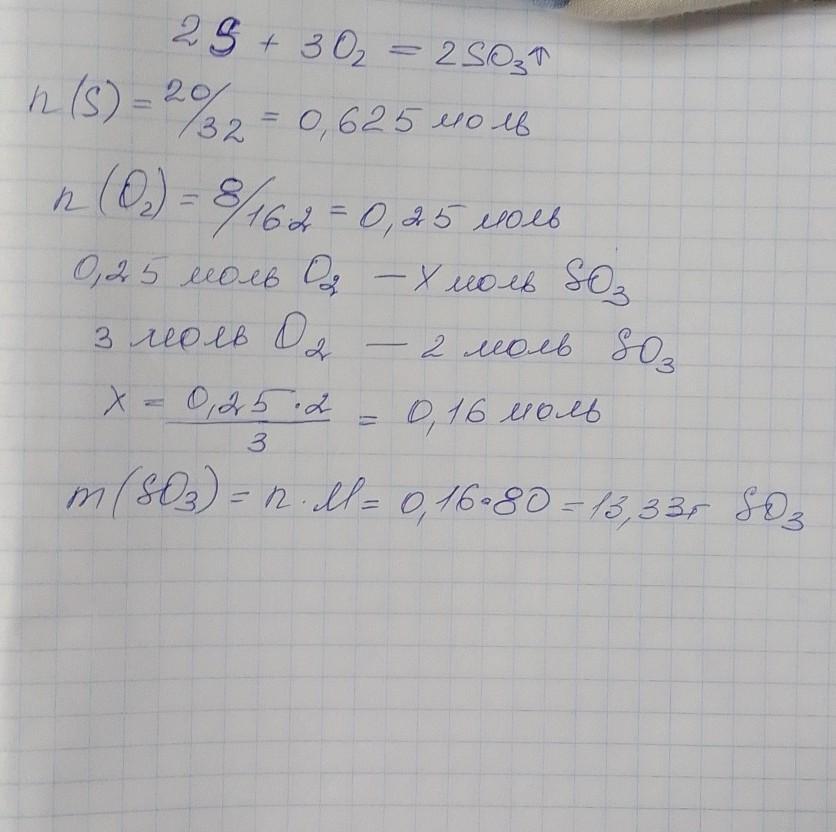 2S + 3O₂ = 2SO₃↑
n(S) = 20/32 = 0,625 моль
n(O₂) = 8/16·2 = 0,25 моль
0,25 моль O₂ — X моль SO₃
3 моль O₂ — 2 моль SO₃
X = 0,25·2/3 = 0,16 моль
m(SO₃) = n·M = 0,16·80 = 13,33г SO₃